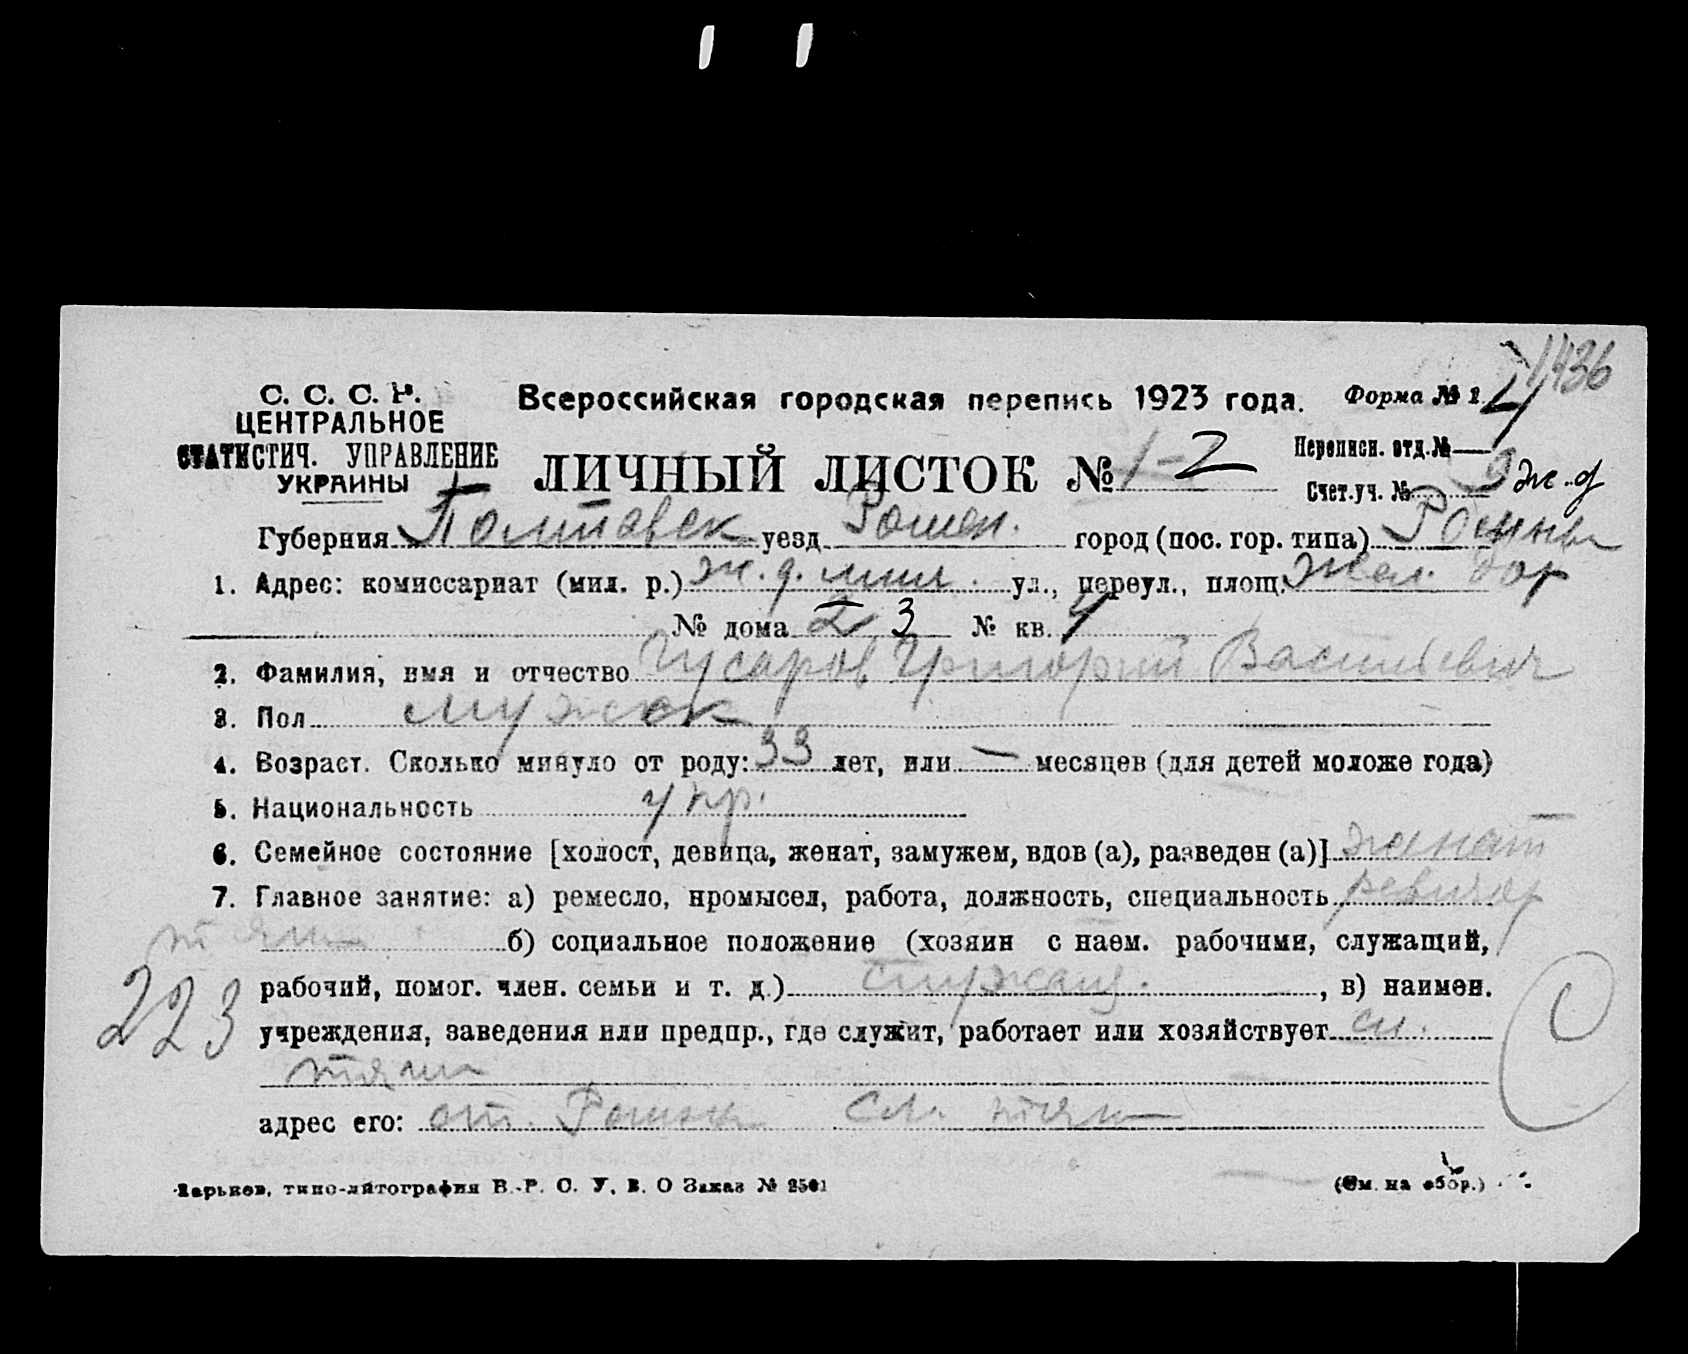 1436
С. С. С. Р.
Всероссийская городская перепись 1923 года.
Форма № 1.
ЦЕНТРАЛЬНОЕ
СТАТИСТИЧ. УПРАВЛЕНИЕ
УКРАИНЫ
ЛИЧНЫЙ ЛИСТОК № 1-2
Переписн. отд. № —
Счет. уч. № 9 ж.д
Губерния Полтавск уезд Ромен. город (пос. гор. типа) Ромны
1. Адрес: комиссариат (мил. р.) ж.д. мил. ул., переул., площ. Жел. дор
№ дома 2 3 № кв. 1
2. Фамилия, имя и отчество Гусаров Григорий Васильевич
3. Пол мужск
4. Возраст. Сколько минуло от роду: 33 лет, или — месяцев (для детей моложе года)
5. Национальность укр.
6. Семейное состояние [холост, девица, женат, замужем, вдов (а), разведен (а)] женат
7. Главное занятие: а) ремесло, промысел, работа, должность, специальность ревизор
тяги б) социальное положение (хозяин с наем. рабочими, служащий,
рабочий, помог. член. семьи и т. д.) служащ. , в) наимен.
223
учреждения, заведения или предпр., где служит, работает или хозяйствует сл.
тяги
адрес его: ст. Ромны сл. тяги
Харьков, типо-литография В.-Р. С. У. В. О Заказ № 2501
(См. на обор.)